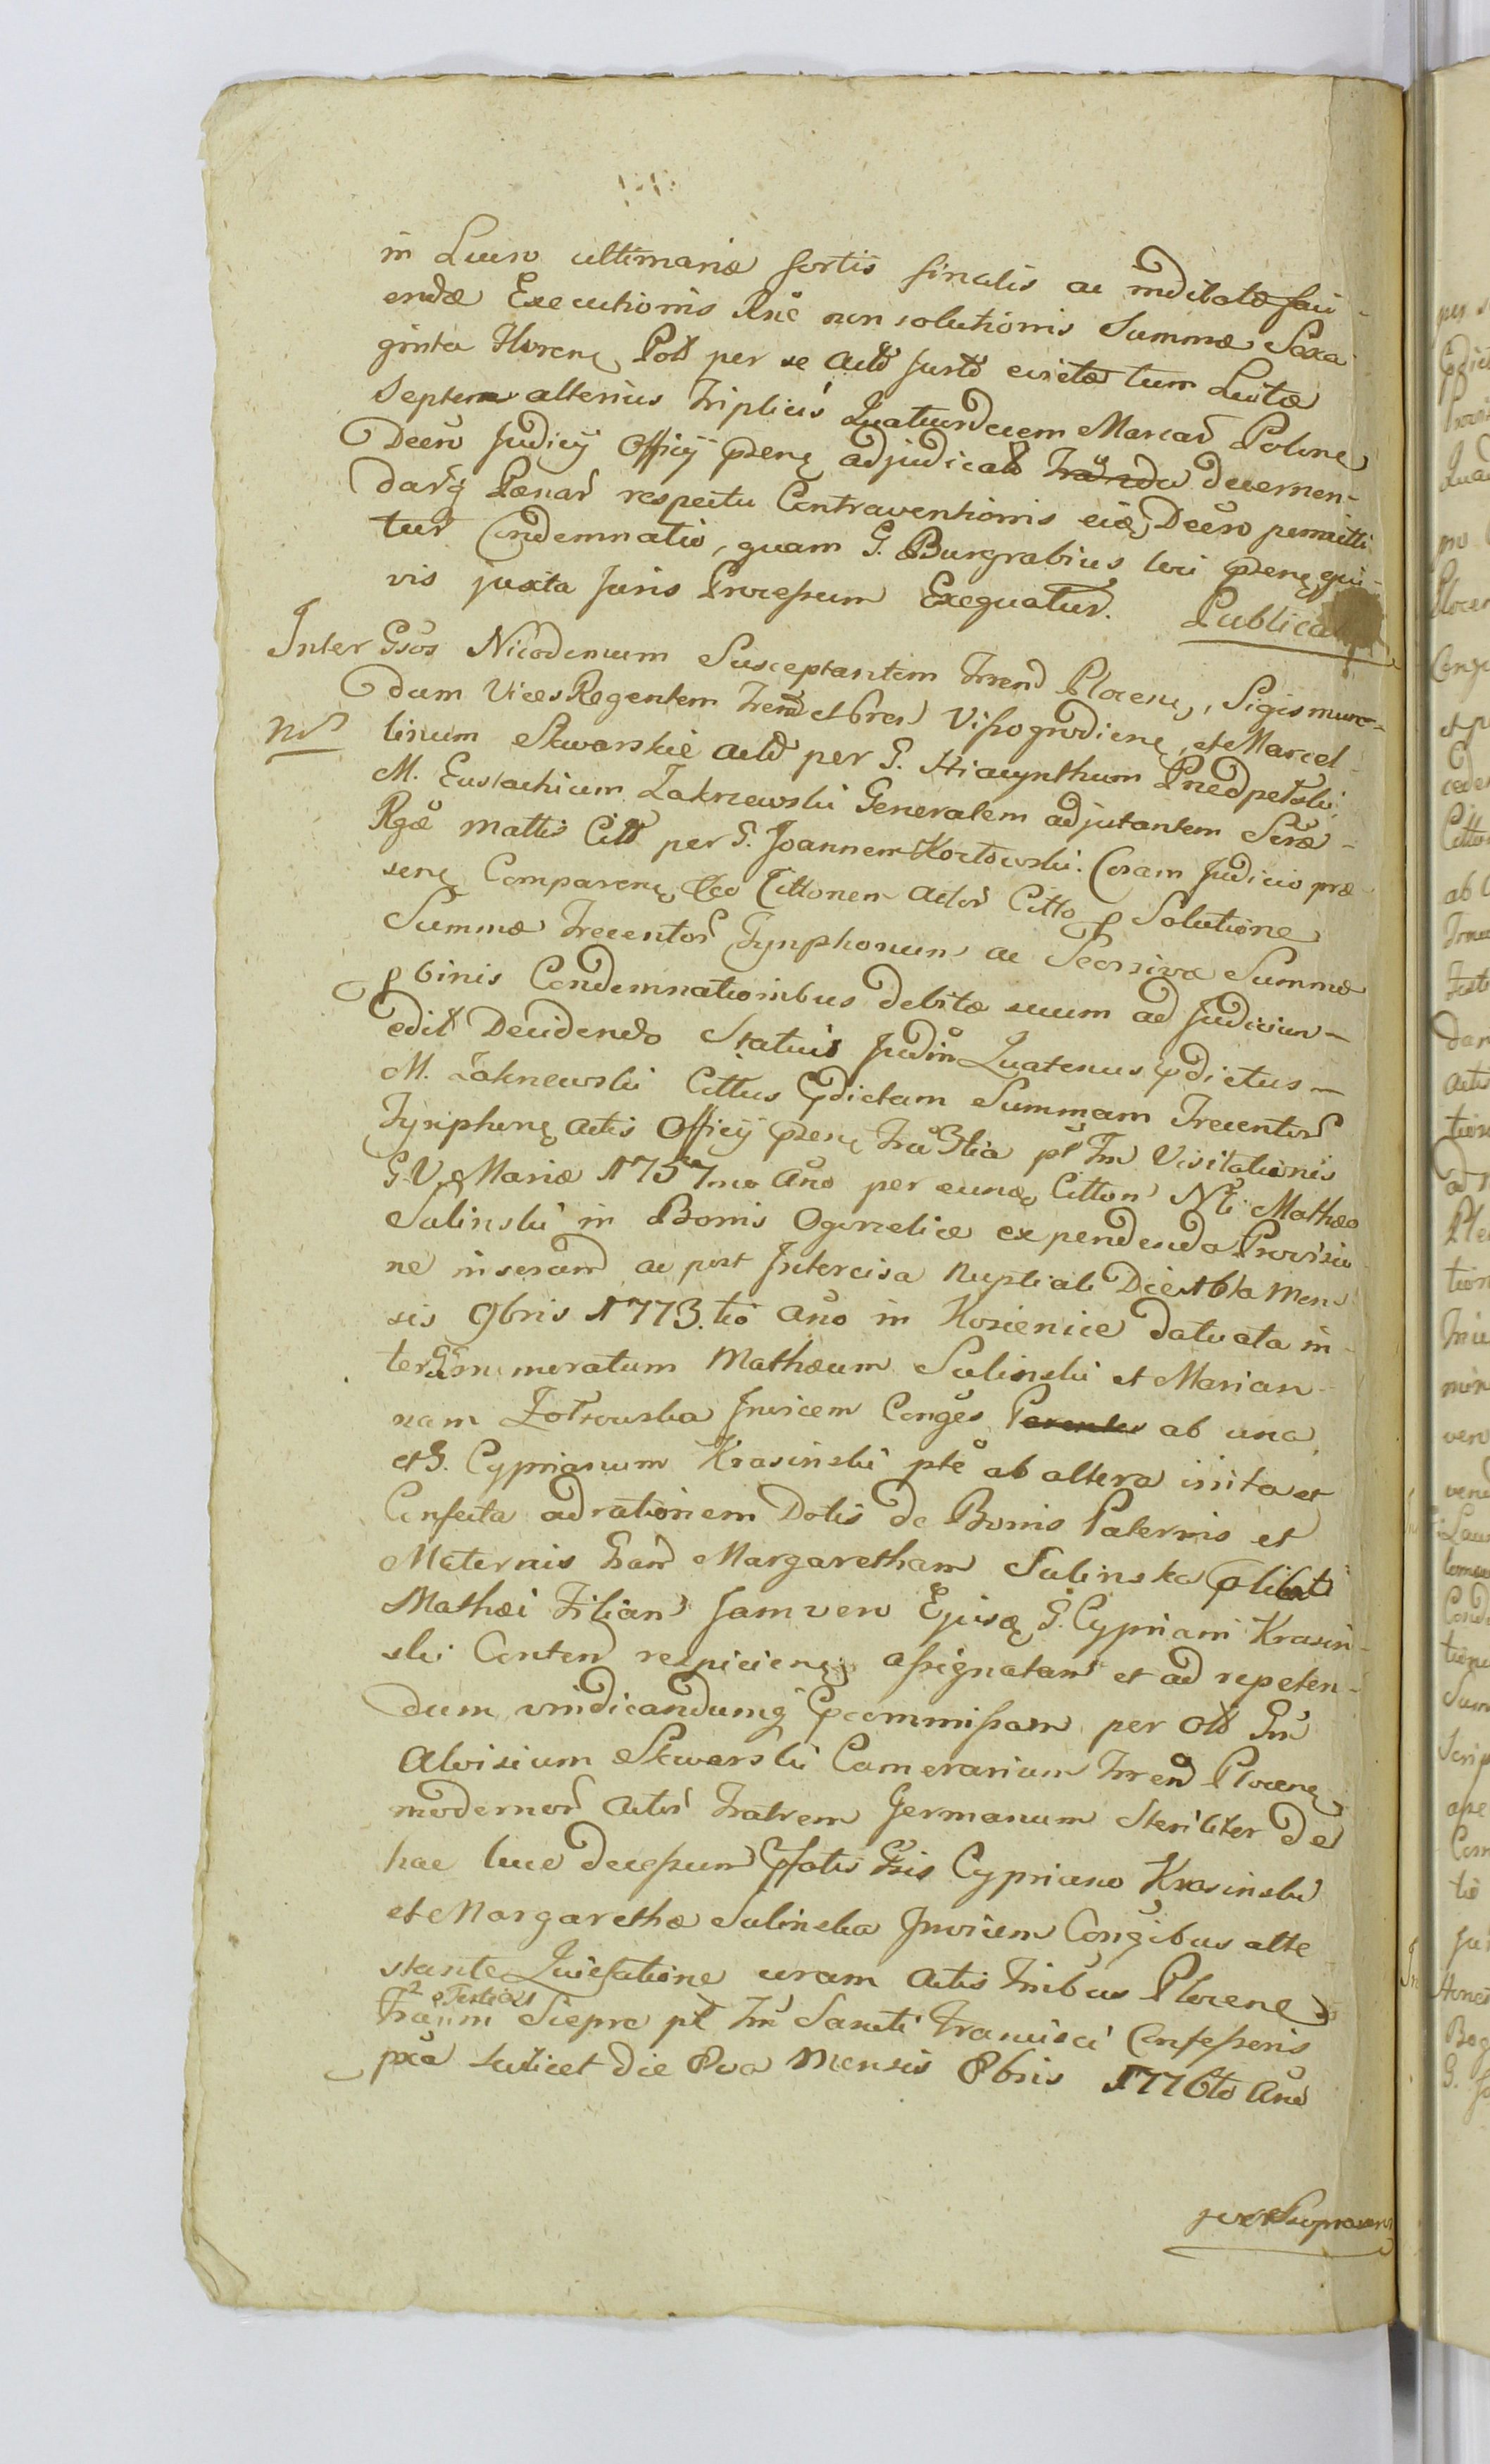 in Lucro ultimariæ sortis finalis ac indilatæ faci-
endæ Executionis Rne non solutionis Summæ Sexa-
ginta Floren Poll per se Actt Jurtt evictæ tum Luitæ
Septem alterius triplicis Quatuordecem Marcar Polone
Decro Judicy Officy præns adjudicatt decernen-
darq Pænar respectu Contraventionis eidæ Decro permitti-
tur Condemnatio, quam G. Burgrabius loci præns qui-
vis juxta Juris Processum Exequatur. Publica
Inter Gsos Nicodemum Susceptantem Trrend Plocens, Sigismun-
dum Vices Regentem Trend et bres Vissogrodiens, et Marcel-
Nd linum Skwarskie Actt per G. Hiacynthum Przedpełski
M. Eustachium Zakrzewski Generalem adjutantem Seræ
Rgæ Mattis Citt per G. Joannem Kozłowski. Coram Judicio præ-
sens Comparens Veo Cittonem Actor Citto p Solutione
Summæ Trecentor Tynphonum ac Seorsivæ Summæ
p binis Condemnationibus debitæ suum ad Judicium
edit Decidendo Statuit Judm Quatenus pdictus
M. Zakrzewski Cittus pdictam Summam Trecentor
Tynphons Actis Officy præns fræ 3tia pt Fm Visitationis
G V Mariæ 1757mo Ano per eunde Citton Nli Mathæo
Sulinski in Bonis Ogorzelice expendenda Provisio-
ne inseram ac post Intercisa Nuptiali Die 16ta Men-
sis 9bris 1773.tio Ano in Kozienice datuata in-
ter Gm muratum Mathæum Sulinski et Marian-
nam Zołtowska Invicem Conges ab una
et G. Cyprianum Krasinski pte ab altera inita et
Confecta ad rationem Dotis de Bonis Paternis et
Maternis Gsam Margaretham Sulinska plibat
Mathæi Filiam Jam vero Ejusq G. Cypriani Krasin-
ski Conten respiciens assignatam et ad repeten-
dum vindicandumq pcommissam per olt Gm
Aloisium Skwarski Camerarium Trrend Plocens
modernor Actor fratrem Germanum Steriliter de
hac luce decessum pfatis Gsis Cypriano Krasinski
et Margarethæ Sulinska Invicem Congibus atte-
stante Quietatione coram Actis Tribus Plocens
fra 2 m Tertia Siepre pt Fm Sancti Francisci Confessoris
pxa scilicet die 8va Mensis 8bris 1776to Ano